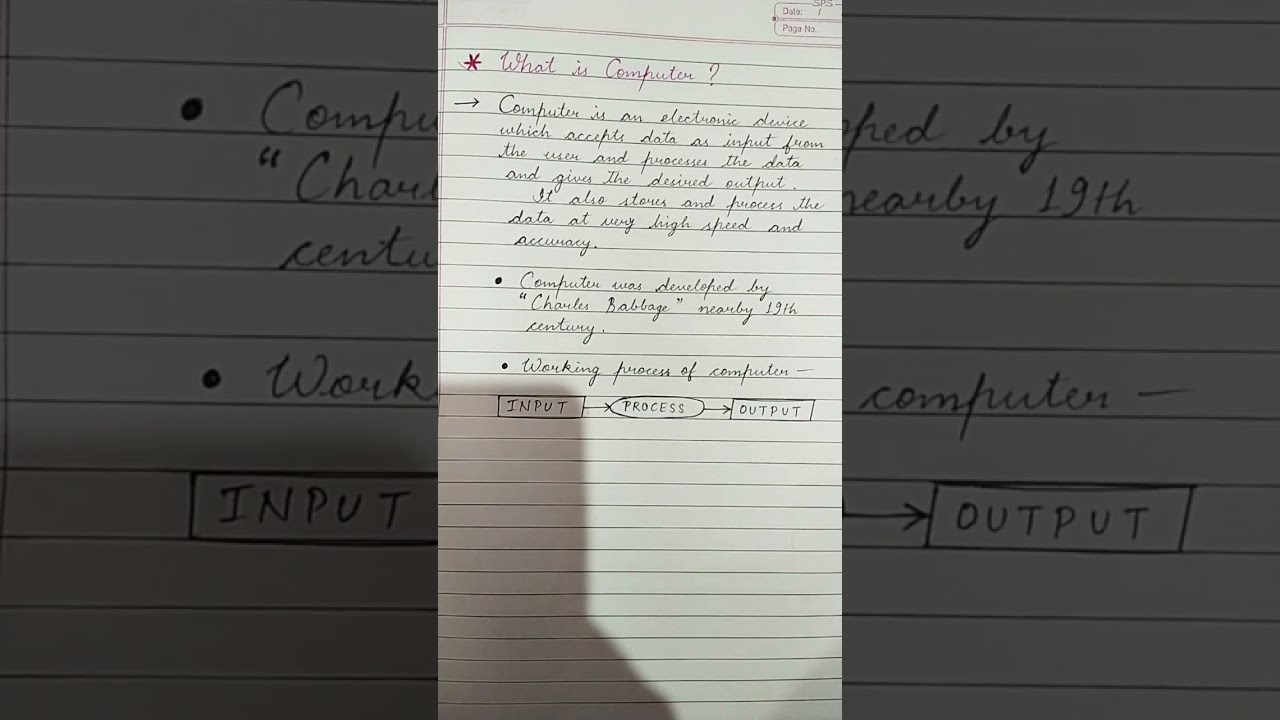 SPS
Date: /
Page No.
* What is Computer ?
→ Computer is an electronic device
which accepts data as input from
the user and processes the data
and gives the desired output.
It also stores and process the
data at very high speed and
accuracy.
• Computer was developed by
"Charles Babbage" nearby 19th
century.
• Working process of computer —
INPUT → PROCESS → OUTPUT